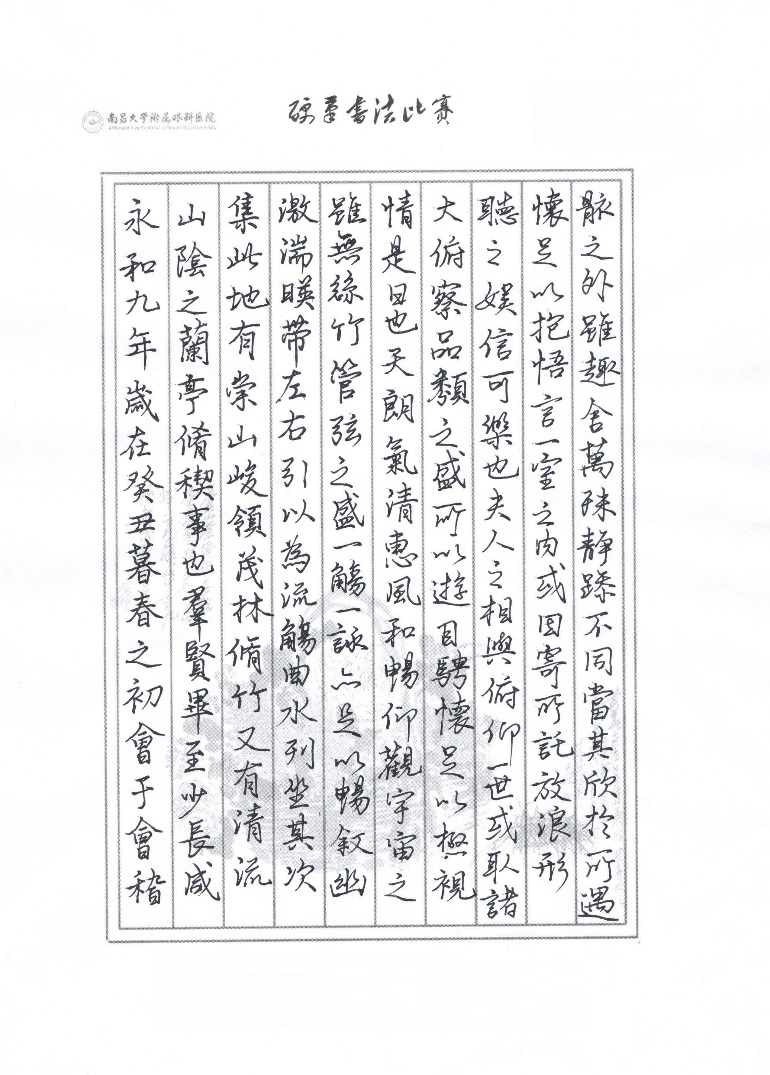 南昌大学附属眼科医院
硬筆書法比賽
永和九年歲在癸丑暮春之初會于會稽
山陰之蘭亭脩稧事也羣賢畢至少長咸
集此地有崇山峻領茂林脩竹又有清流
激湍暎帶左右引以為流觴曲水列坐其次
雖無絲竹管弦之盛一觴一詠亦足以暢敘幽
情是日也天朗氣清惠風和暢仰觀宇宙之
大俯察品類之盛所以遊目騁懷足以極視
聽之娛信可樂也夫人之相與俯仰一世或取諸
懷足以抱悟言一室之內或因寄所託放浪形
骸之外雖趣舍萬殊靜躁不同當其欣於所遇